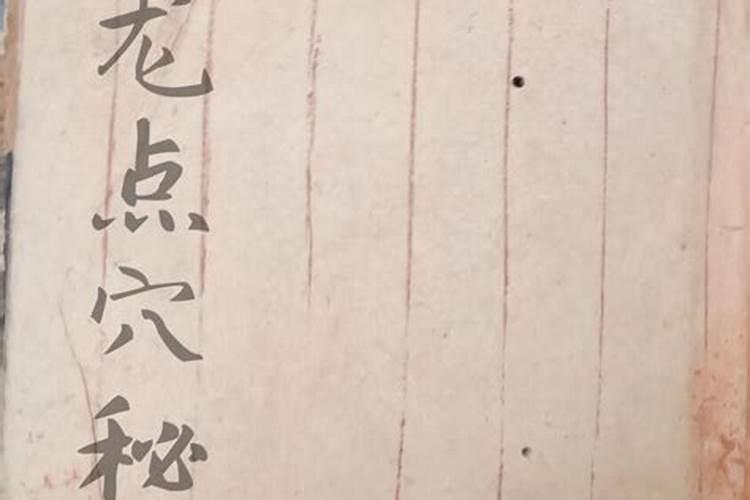 龙点穴秘